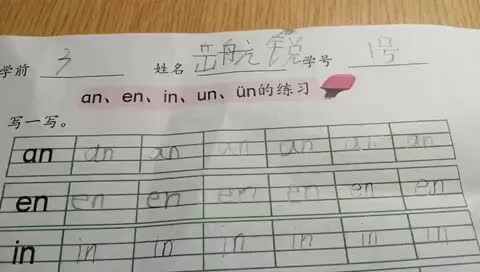 学前 3 姓名 航锐 学号 1号
an、en、in、un、ün的练习
写一写。
an an an an an an an
en en en en en en en
in in in in in in in